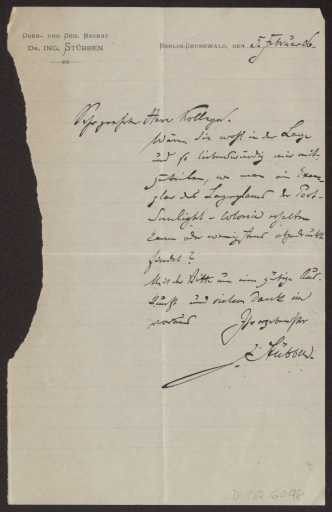 Ober- und Geh. Baurat
Dr. Ing. Stübben
Berlin-Grunewald, den 5. Februar
Sehr geehrter Herr Kollege.
Wären Sie wohl in der Lage
und so liebenswürdig mir mit-
zuteilen, wo man ein Exem-
plar des Lageplans der Port-
Sunlight-Colonie erhalten
kann oder wenigstens abgedruckt
findet?
Mit der Bitte um eine gütige Aus-
kunft und vielem Dank im
voraus
Ihr ergebenster
J. Stübben.